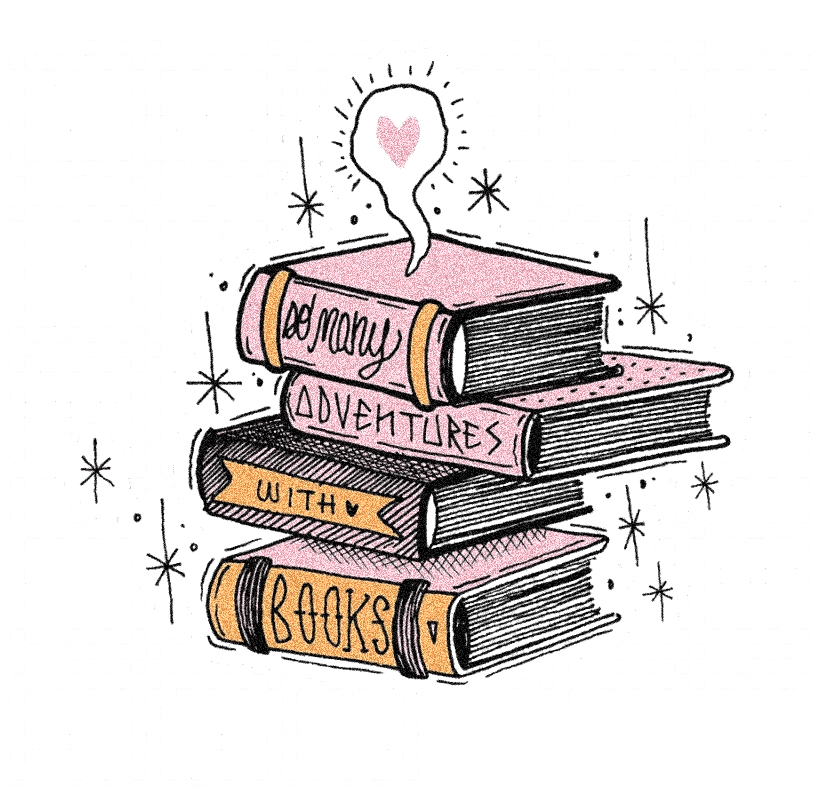 so many
ADVENTURES
WITH
BOOKS